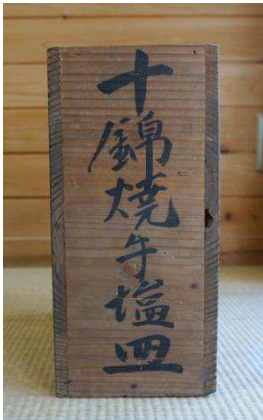 十錦焼手塩皿